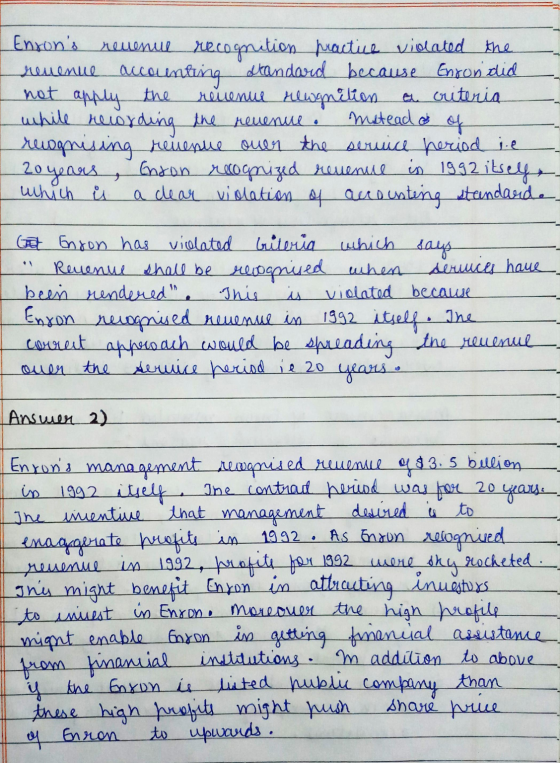 Enron's revenue recognition practice violated the
revenue accounting standard because Enron did
not apply the revenue recognition criteria
while recording the revenue. Instead of
recognising revenue over the service period i.e
20 years, Enron recognized revenue in 1992 itself,
which is a clear violation of accounting standard.
Enron has violated Criteria which says
" Revenue shall be recognised when services have
been rendered". This is violated because
Enron recognised revenue in 1992 itself. The
correct approach would be spreading the revenue
over the service period i.e 20 years.
Answer 2)
Enron's management recognised revenue of $3.5 billion
in 1992 itself. The contract period was for 20 years.
The incentive that management desired is to
exaggerate profits in 1992. As Enron recognised
revenue in 1992, profits for 1992 were sky rocketed.
This might benefit Enron in attracting investors
to invest in Enron. Moreover the high profile
might enable Enron in getting financial assistance
from financial institutions. In addition to above
if the Enron is listed public company than
these high profits might push share price
of Enron to upwards.